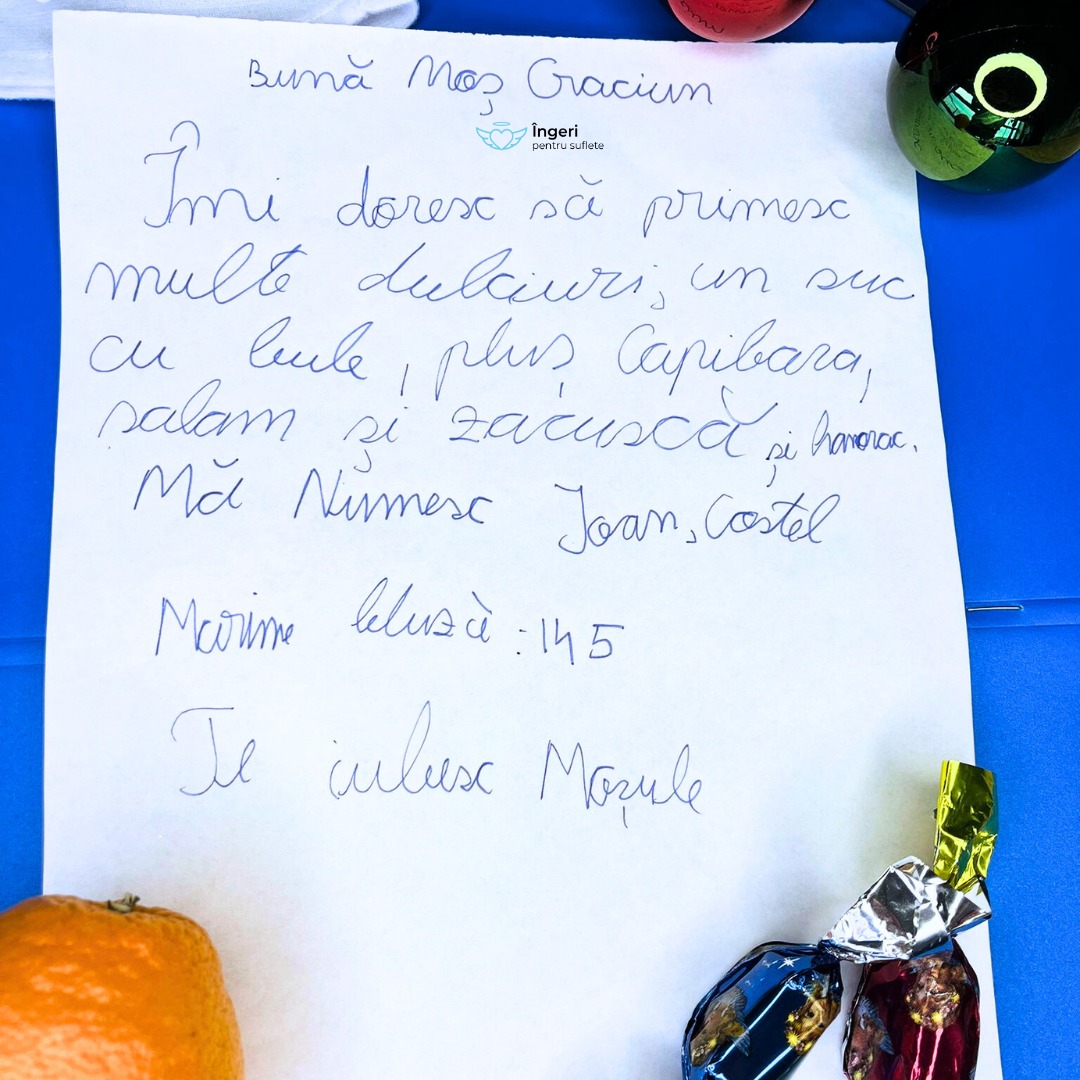 Bună Moș Craciun
Îngeri
pentru suflete
Îmi doresc să primesc
multe dulciuri, un suc
cu bule, pluș Capibara,
salam și zacuscă și hanorac.
Mă Numesc Ioan, Costel
Marime bluză: 145
Te iubesc Moșule